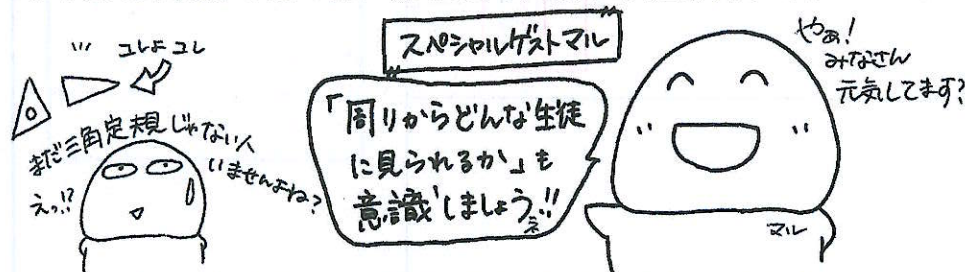 コレよコレ
まだ三角定規じゃない人
いませんよね?
えっ!?
スペシャルゲストマル
「周りからどんな生徒
に見られるか」も
意識しましょうネ!!
やぁ!
みなさん
元気してます?
マル